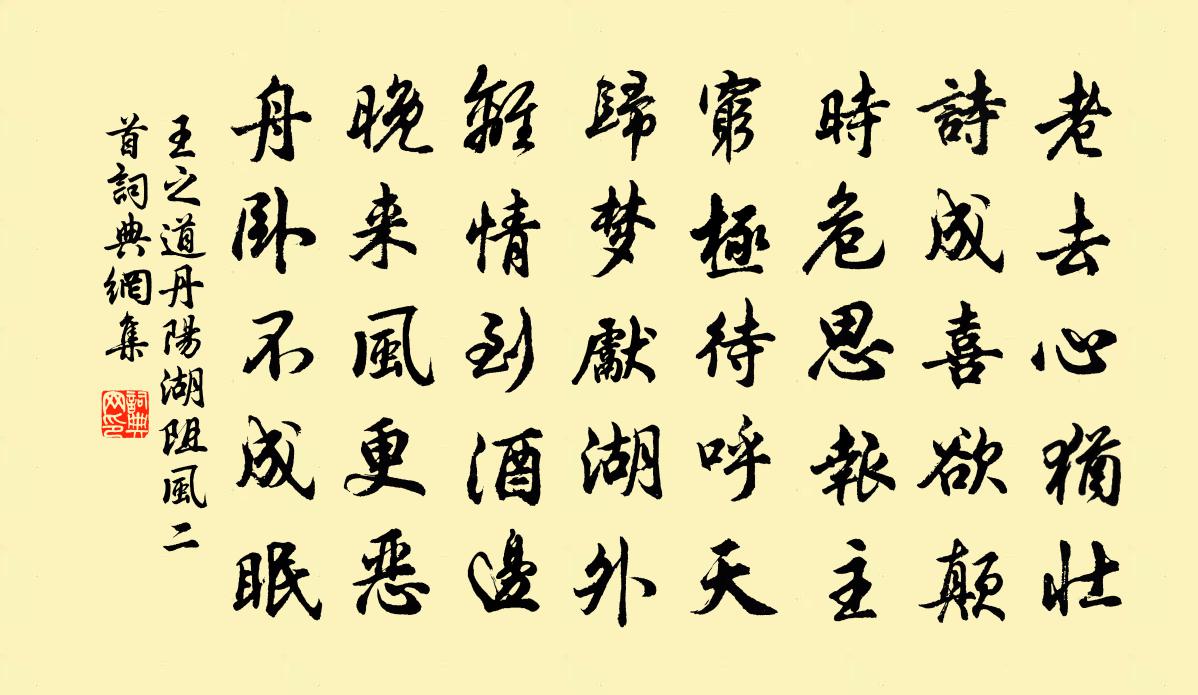 老去心猶壯
詩成喜欲顛
時危思報主
窮極待呼天
歸梦獻湖外
離情到酒邊
晚来風更恶
舟卧不成眠
王之道丹陽湖阻風二
首詞典網集
詞典
网印